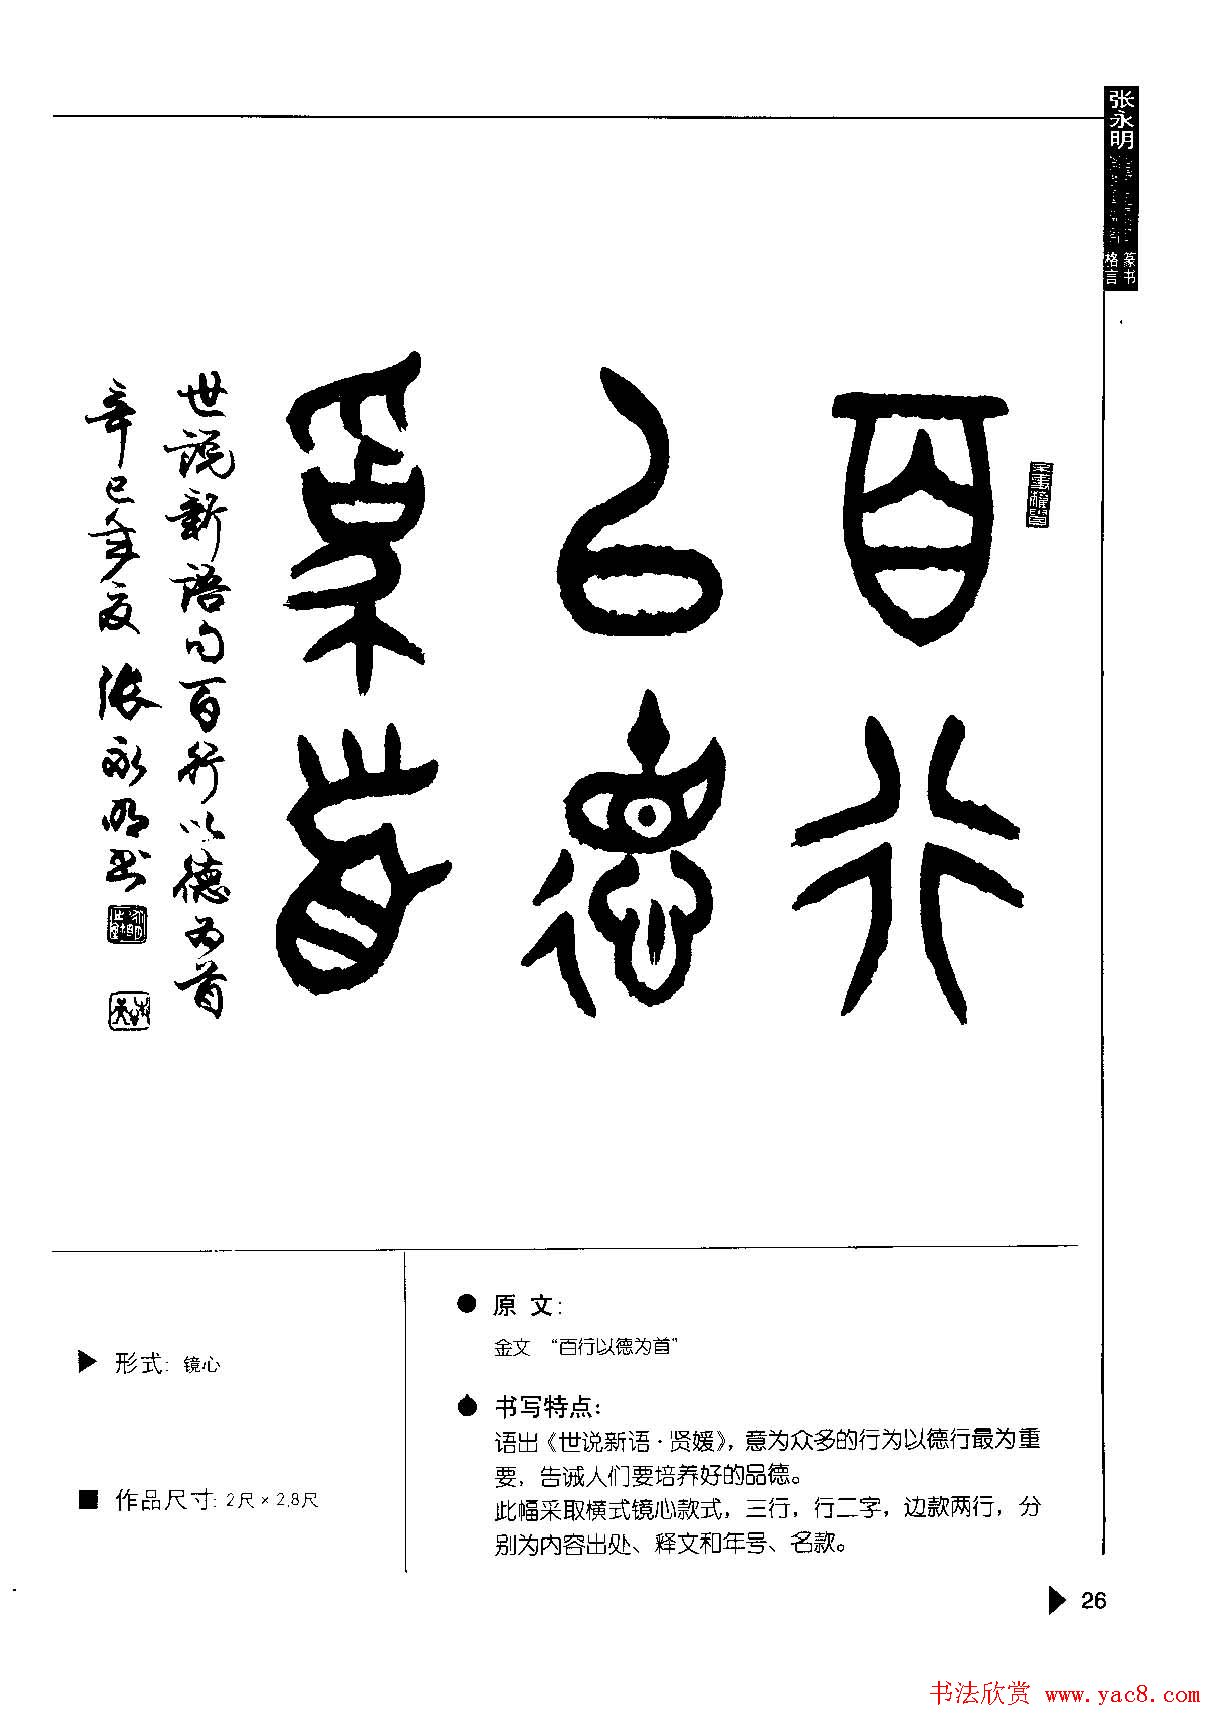 张永明
篆书
格言
百行
以德
为首
世说新语句百行以德为首
辛巳年夏张永明书
原 文:
金文 “百行以德为首”
形式: 镜心
书写特点:
语出《世说新语·贤媛》，意为众多的行为以德行最为重
要，告诫人们要培养好的品德。
此幅采取横式镜心款式，三行，行二字，边款两行，分
别为内容出处、释文和年号、名款。
作品尺寸: 2尺×2.8尺
26
书法欣赏 www.yac8.com